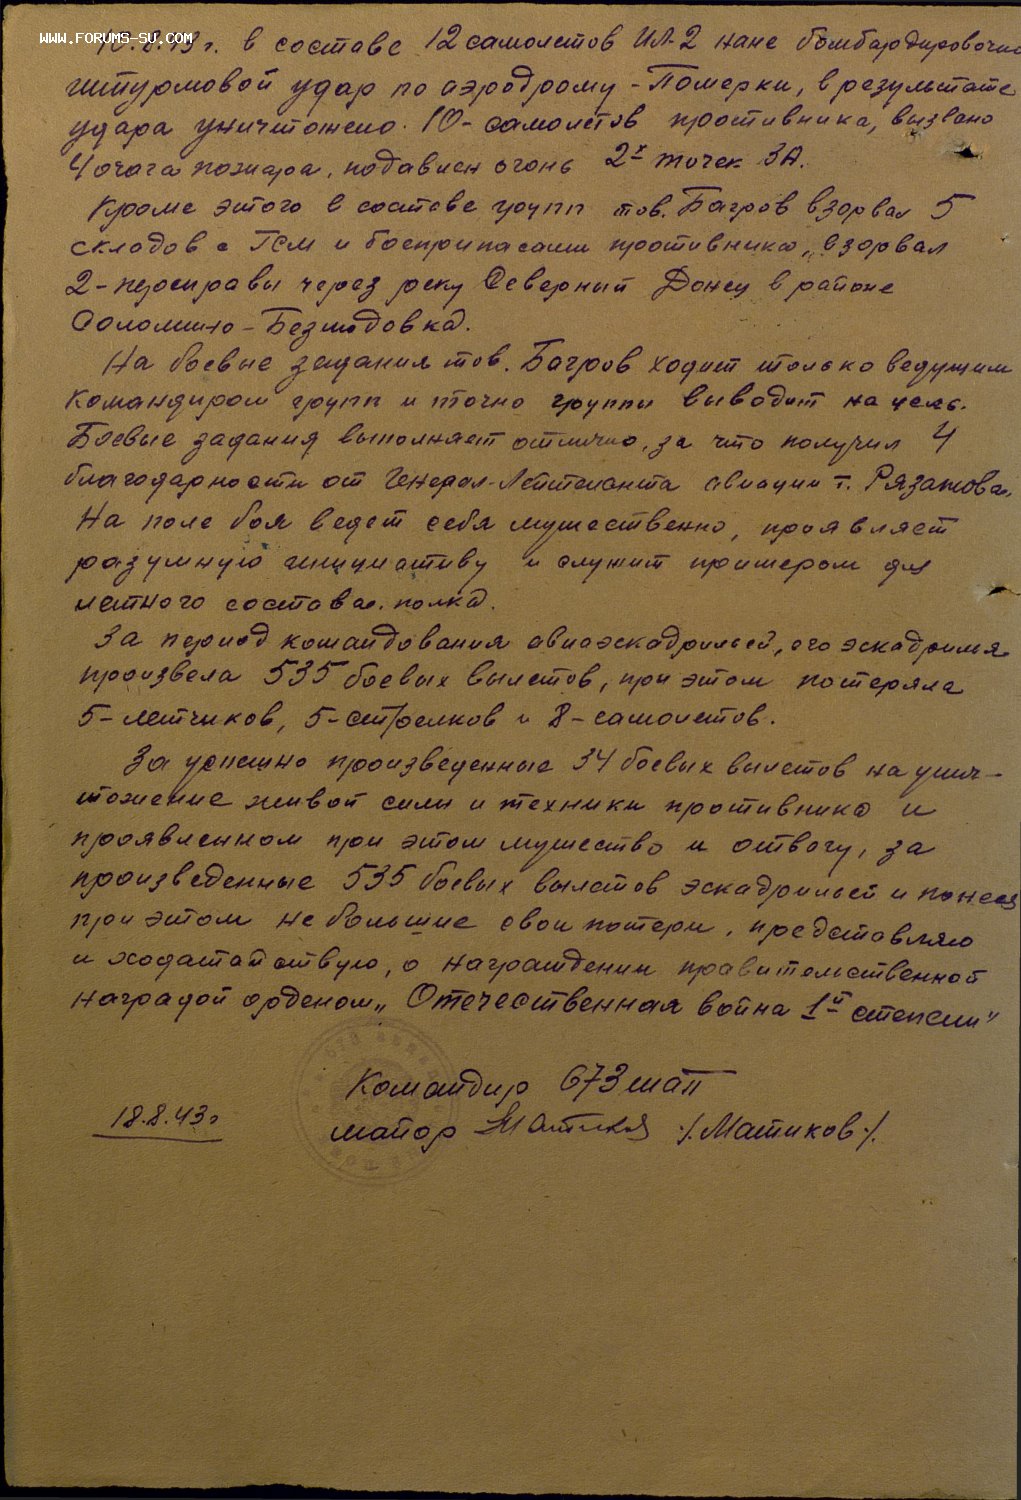 WWW.FORUMS-SU.COM
г. в составе 12 самолетов ИЛ-2 нане бомбардировочно
штурмовой удар по аэродрому - Померки, в результате
удара уничтожено 10- самолетов противника, вызвано
4 очага пожара, подавлен огонь 2х точек ЗА.
Кроме этого в составе групп тов. Багров взорвал 5
складов с ГСМ и боеприпасами противника, взорвал
2-переправы через реку Северный Донец в районе
Соломино - Безлюдовка.
На боевые задания тов. Багров ходит только ведущим
командиром групп и точно группы выводит на цель.
Боевые задания выполняет отлично, за что получил 4
благодарности от Генерал-Лейтенанта авиации т. Рязанова.
На поле боя ведет себя мужественно, проявляет
разумную инициативу и служит примером для
летного состава полка.
За период командования авиаэскадрильей, его эскадрилья
произвела 535 боевых вылетов, при этом потеряла
5-летчиков, 5-стрелков и 8-самолетов.
За успешно произведенные 34 боевых вылетов на унич-
тожение живой силы и техники противника и
проявленном при этом мужество и отвагу, за
произведенные 535 боевых вылетов эскадрильей и понеся
при этом не большие свои потери, представляю
и ходатайствую, о награждении правительственной
наградой орденом „Отечественная война 1й степени"
Командир 673 шап
18.8.43г
майор /Матиков/